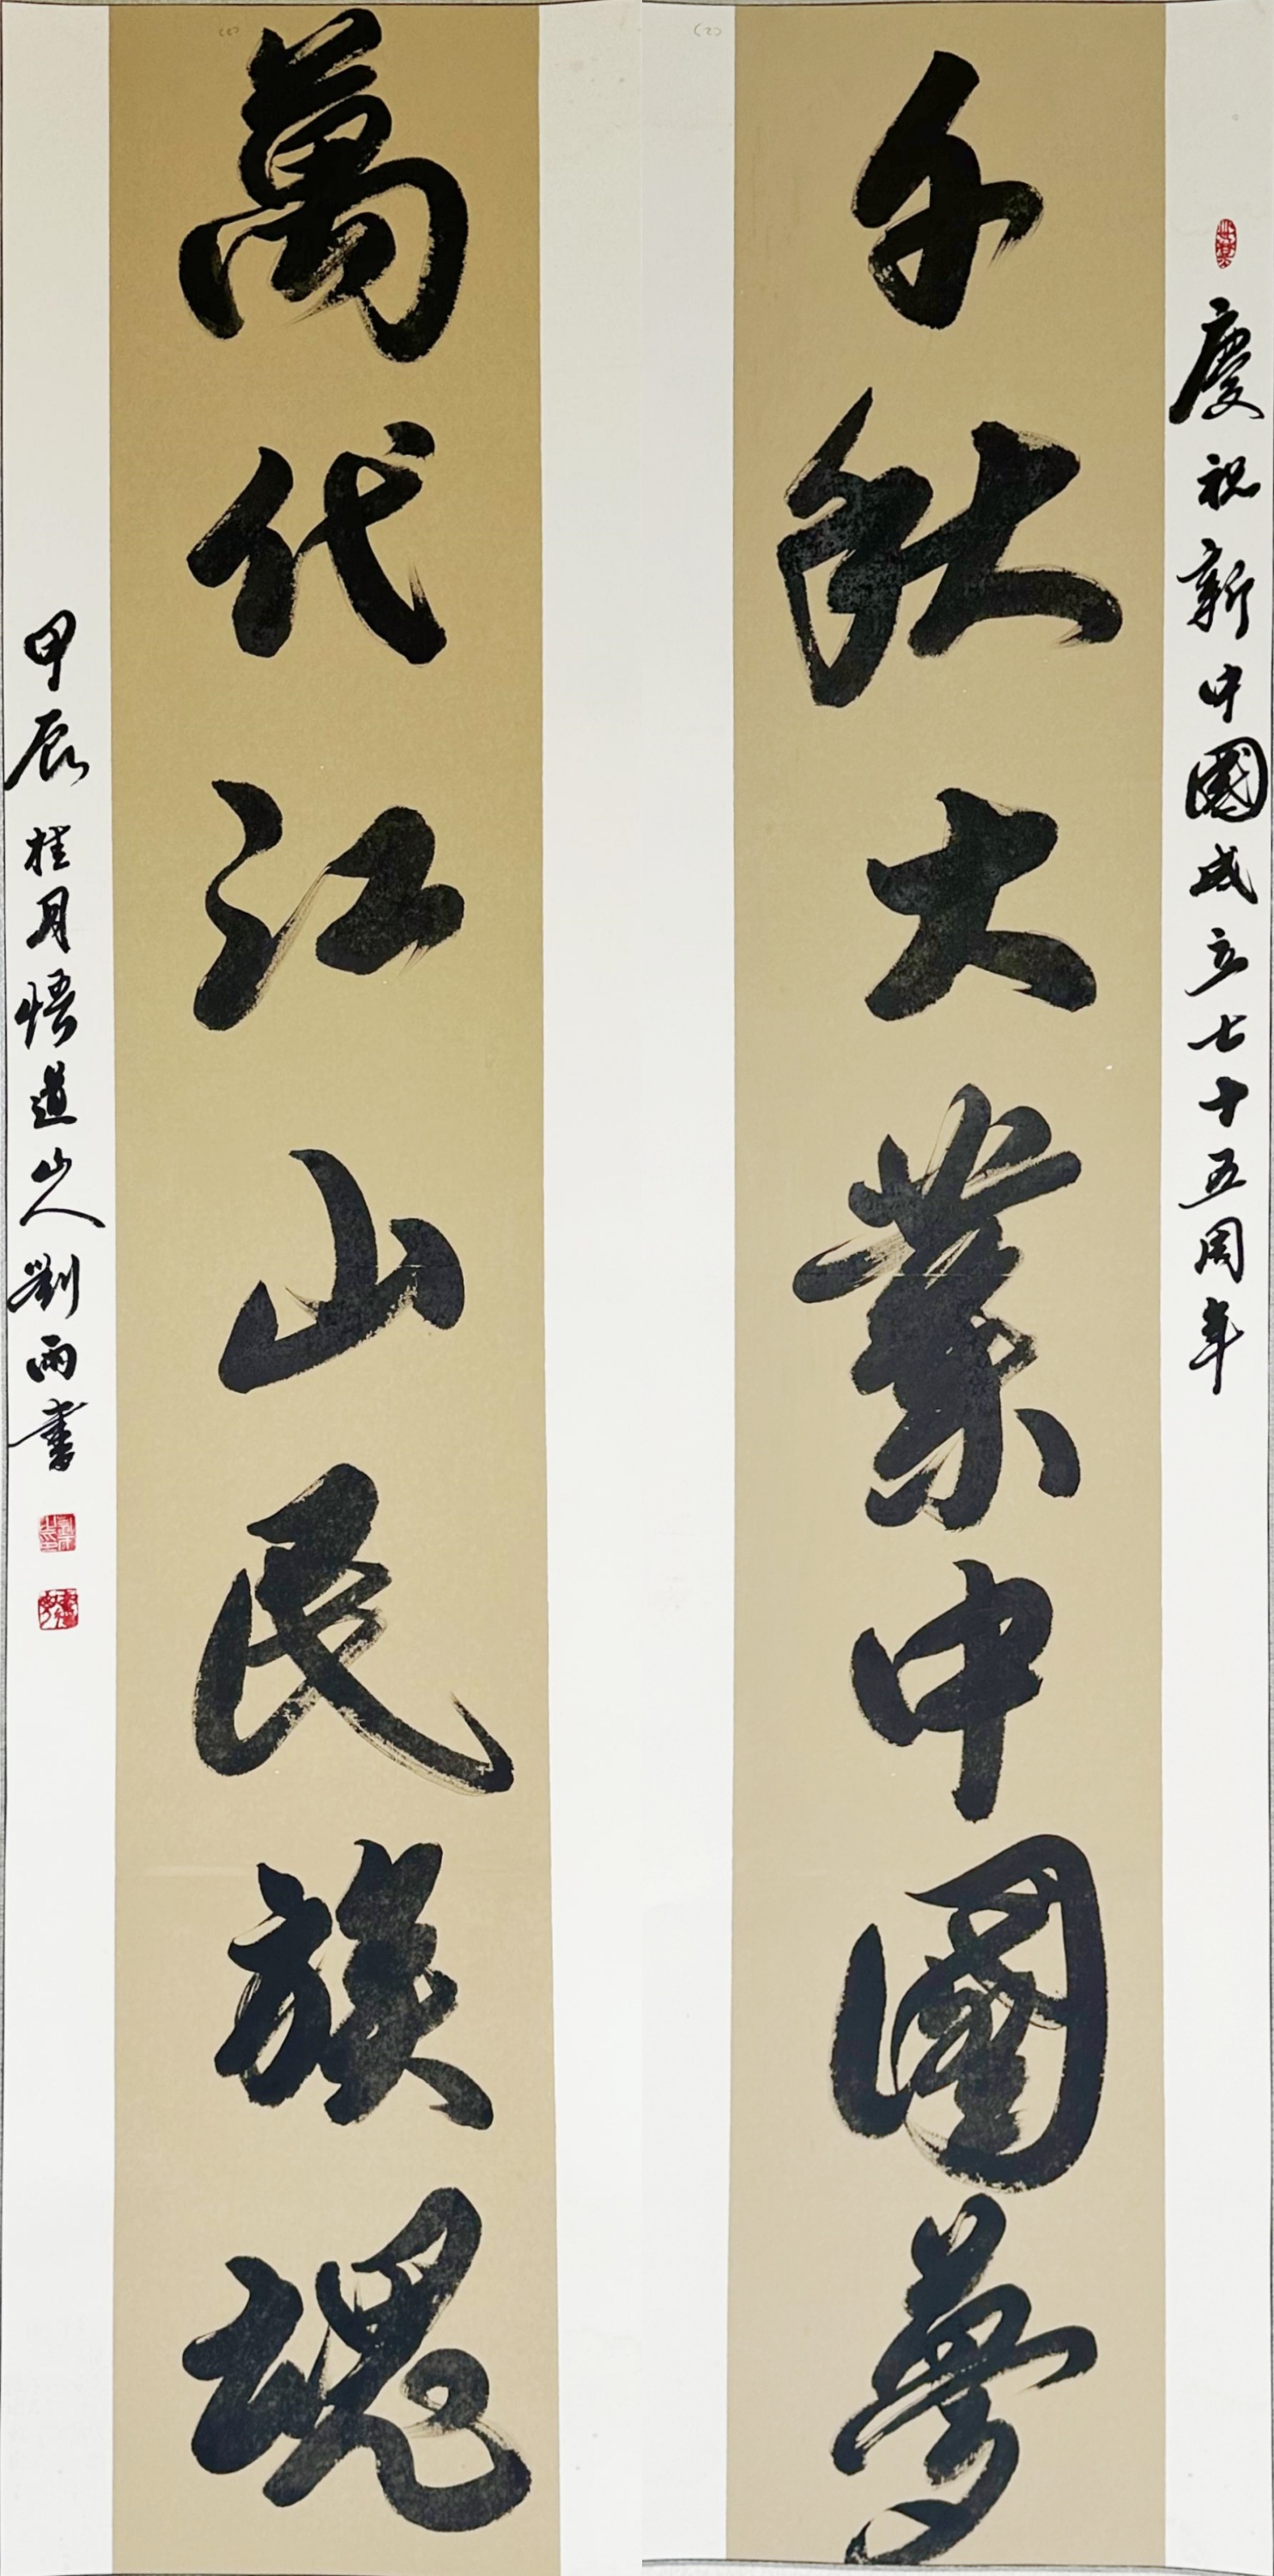 慶祝新中國成立七十五周年
千秋大業中國夢
萬代江山民族魂
甲辰桂月悟道山人劉雨書